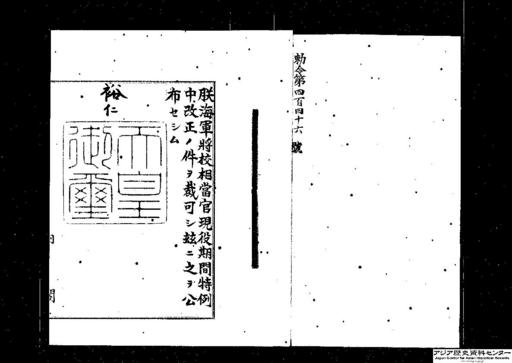 勅令第四百四十六號
朕海軍將校相當官現役期間特例
中改正ノ件ヲ裁可シ玆ニ之ヲ公
布セシム
裕仁
天皇
御璽
内閣
アジア歴史資料センター
Japan Center for Asian Historical Records